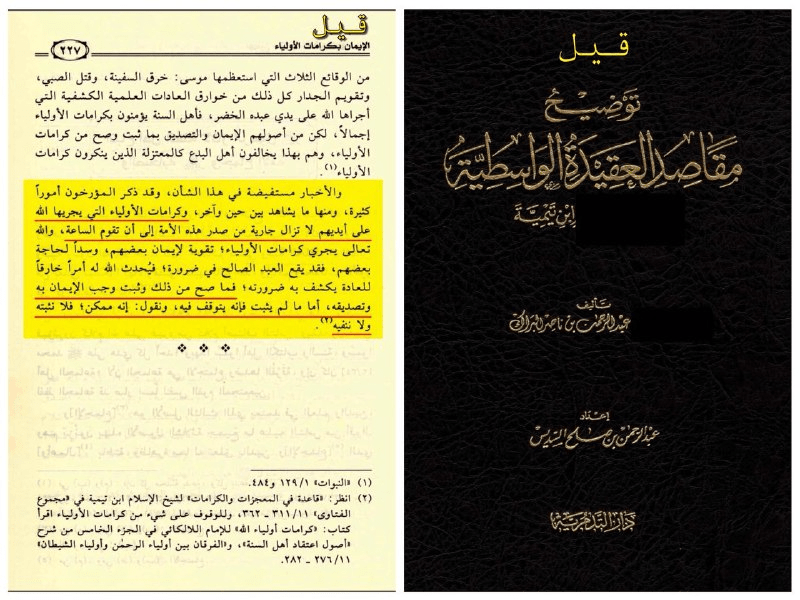 قيل
الإيمان بكرامات الأولياء
٢٢٧
من الوقائع الثلاث التي استعظمها موسى: خرق السفينة، وقتل الصبي،
وتقويم الجدار كل ذلك من خوارق العادات العلمية الكشفية التي
أجراها الله على يدي عبده الخضر، فأهل السنة يؤمنون بكرامات الأولياء
إجمالاً، لكن من أصولهم الإيمان والتصديق بما ثبت وصح من كرامات
الأولياء، وهم بهذا يخالفون أهل البدع كالمعتزلة الذين ينكرون كرامات
الأولياء(١).
والأخبار مستفيضة في هذا الشأن، وقد ذكر المؤرخون أموراً
كثيرة، ومنها ما يشاهد بين حين وآخر، وكرامات الأولياء التي يجريها الله
على أيديهم لا تزال جارية من صدر هذه الأمة إلى أن تقوم الساعة، والله
تعالى يجري كرامات الأولياء؛ تقوية لإيمان بعضهم، وسداً لحاجة
بعضهم، فقد يقع العبد الصالح في ضرورة؛ فيُحدث الله له أمراً خارقاً
للعادة يكشف به ضرورته؛ فما صح من ذلك وثبت وجب الإيمان به
وتصديقه، أما ما لم يثبت فإنه يتوقف فيه، ونقول: إنه ممكن؛ فلا نثبته
ولا ننفيه(٢).
(١) «النبوات» ١/ ١٢٩ و٤٨٤.
(٢) انظر: «قاعدة في المعجزات والكرامات» لشيخ الإسلام ابن تيمية في «مجموع
الفتاوى» ١١/ ٣١١ ـ ٣٦٢، وللوقوف على شيء من كرامات الأولياء اقرأ
كتاب: «كرامات أولياء الله» للإمام اللالكائي في الجزء الخامس من شرح
«أصول اعتقاد أهل السنة»، و«الفرقان بين أولياء الرحمٰن وأولياء الشيطان»
١١/ ٢٧٦ ـ ٢٨٢.
قيل
توضيح
مقاصد العقيدة الواسطية
ابن تيمية
تأليف
عبد الرحمن بن ناصر البراك
إعداد
عبد الرحمن بن صالح السديس
دار التدمرية